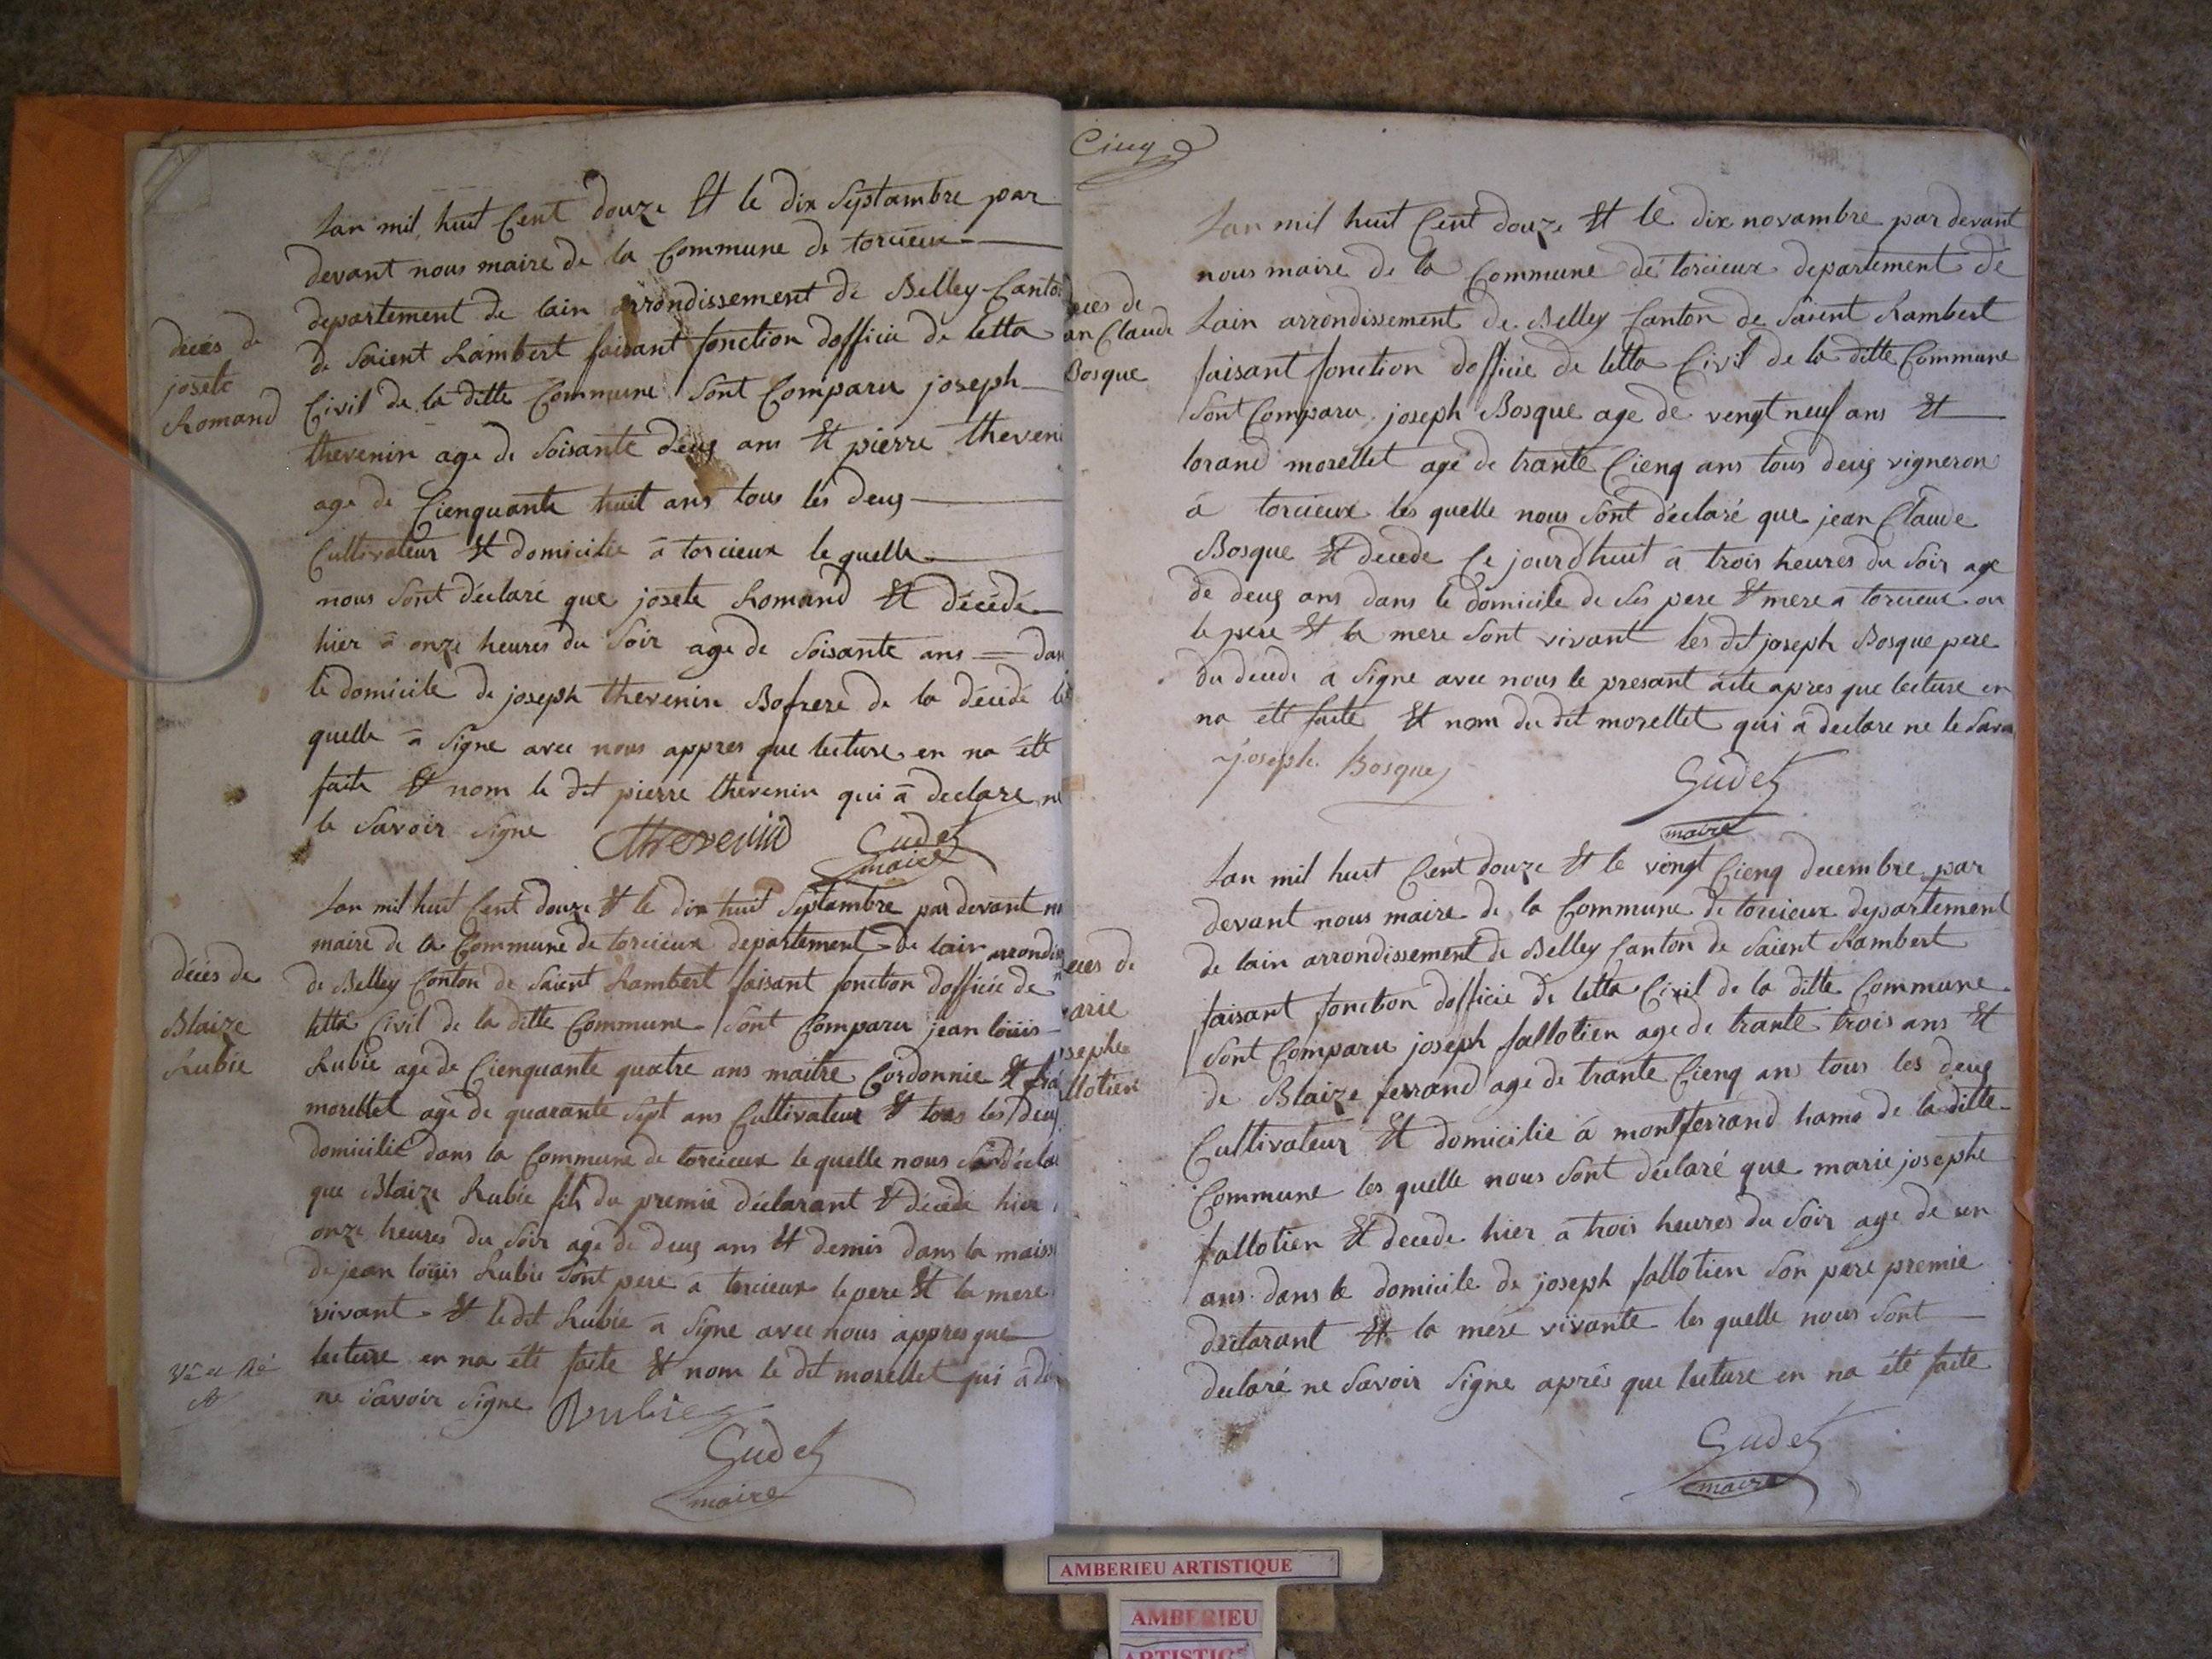 décès de
josete
Romand
Lan mil huit Cent douze Et le dix Septambre par
devant nous maire de la Commune de torcieux
departement de lain arrondissement de Belley Canton
de Saient Rambert faisant fonction dofficie de letta
Civil de la ditte Commune Sont Comparu joseph
thevenin age de Soisante deug ans Et pierre theveni
age de Cienquante huit ans tous les deug
Cultivateur Et domicilie a torcieux le quelle
nous Sont déclaré que josete Romand Et décédé
hier a onze heures du Soir age de Soisante ans = dan
le domicile de joseph thevenin Bofrere de la décédé
quelle a Signe avec nous appres que lecture en na été
faite Et nom le dit pierre thevenin qui a declare ne
le Savoir Signe
Thevenin
Gudet
maire
décès de
Blaize
Rubie
Lan mil huit Cent douze Et le dix huit Septambre par devant
maire de la Commune de torcieux departement de lain arrondis
de Belley Conton de Saient Rambert faisant fonction dofficie de
letta Civil de la ditte Commune Sont Comparu jean loüis
Rubie age de Cienquante quatre ans maitre Cordonnie Et fra
morellet age de quarante Sept ans Cultivateur Et tous les deug
domicilié dans la Commune de torcieux le quelle nous Sont décla
que Blaize Rubie fils du premie déclarant Et décédé hier
onze heures du Soir age de deug ans Et demis dans la maiss
de jean loüis Rubie Sont pere a torcieux le pere Et la mere
vivant Et le dit Rubie a Signe avec nous appres que
lecture en na été faite Et nom le dit morellet qui a dé
ne Savoir Signe
Rubie
Gudet
maire
Cinq
eces de
an Claude
Bosque
Lan mil huit Cent douze Et le dix novambre par devant
nous maire de la Commune de torcieux departement de
Lain arrondissement de Belley Canton de Saient Rambert
faisant fonction dofficie de letta Civil de la ditte Commune
Sont Comparu joseph Bosque age de vengt neuf ans Et
lorand morellet age de trante Cienq ans tous deug vigneron
á torcieux les quelle nous Sont déclaré que jean Claude
Bosque Et decede Ce jourdhuit a trois heures du Soir age
de deug ans dans le domicile de Ses pere Et mere a torcieux ou
le pere Et la mere Sont vivant les dit joseph Bosque pere
du decede a Signe avec nous le presant acte apres que lecture en
na été faite Et nom du dit morellet qui a declare ne le Sava
joseph Bosque
Gudet
maire
eces de
arie
sephe
llotien
Lan mil huit Cent douze Et le vengt Cienq decembre par
devant nous maire de la Commune de torcieux departement
de lain arrondissement de Belley Canton de Saient Rambert
faisant fonction dofficie de letta Civil de la ditte Commune
Sont Comparu joseph fallotien age de trante trois ans Et
de Blaize ferrand age de trante Cienq ans tous les deug
Cultivateur Et domicilie á montferrand hamo de la ditte
Commune les quelle nous Sont déclaré que marie josephe
fallotien Et decede hier a trois heures du Soir age de un
ans dans le domicile de joseph fallotien Son pere premie
declarant Et la mere vivante les quelle nous Sont
declaré ne Savoir Signe aprés que lecture en na été faite
Gudet
maire
AMBERIEU ARTISTIQUE
AMBERIEU